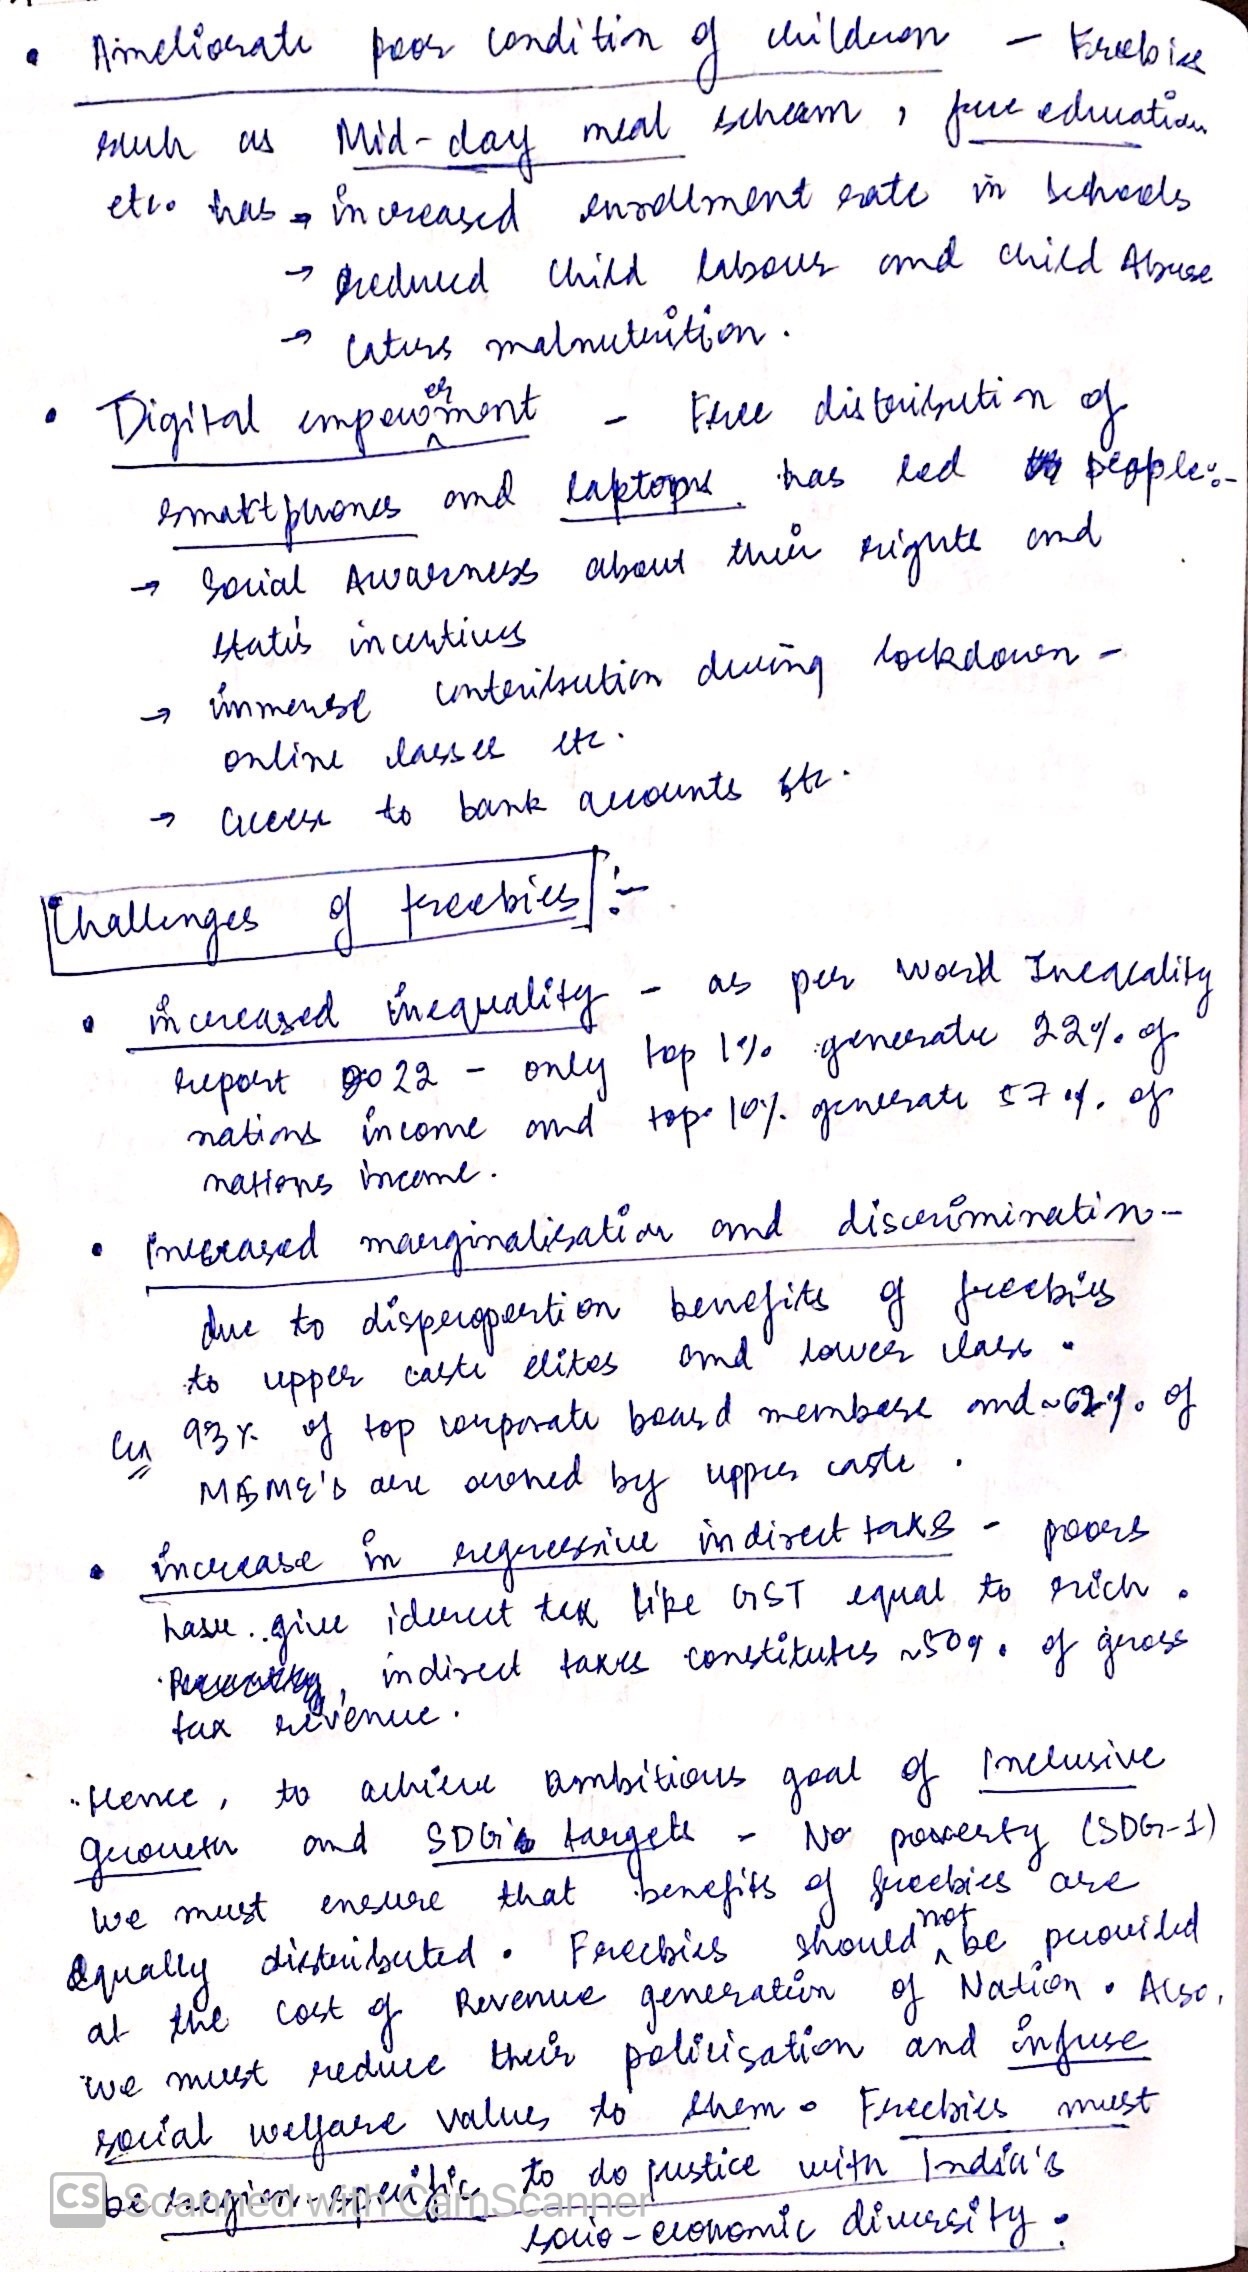 • Ameliorate poor condition of children - Freebies
such as Mid-day meal scheam, free education
etc. has → increased enrollment rate in schools
→ reduced child labour and child Abuse
→ caters malnutrition.
• Digital empowerment - Free distribution of
smartphones and laptops has led people:-
→ Social Awarness about their rights and
state's incentives
→ immense contribution during lockdown -
online classes etc.
→ access to bank accounts etc.
Challenges of freebies :-
• increased inequality - as per World Inequality
report 2022 - only top 1% generate 22% of
nations income and top 10% generate 57% of
nations income.
• increased marginalisation and discrimination -
due to dispropertion benefits of freebies
to upper caste elites and lower class.
Ex 93% of top corporate board members and ~62% of
MSME's are owned by upper caste.
• increase in regressive indirect taxs - poors
have give idirect tax like GST equal to rich.
indirect taxes constitutes ~50% of gross
tax revenue.
Hence, to achieve ambitious goal of Inclusive
growth and SDG's targets - No poverty (SDG-1)
we must ensure that benefits of freebies are
Equally distributed. Freebies should not be provided
at the cost of Revenue generation of Nation. Also,
we must reduce their policisation and infuse
social welfare values to them. Freebies must
be region-specific to do justice with India's
socio-economic diversity.
CS Scanned with CamScanner